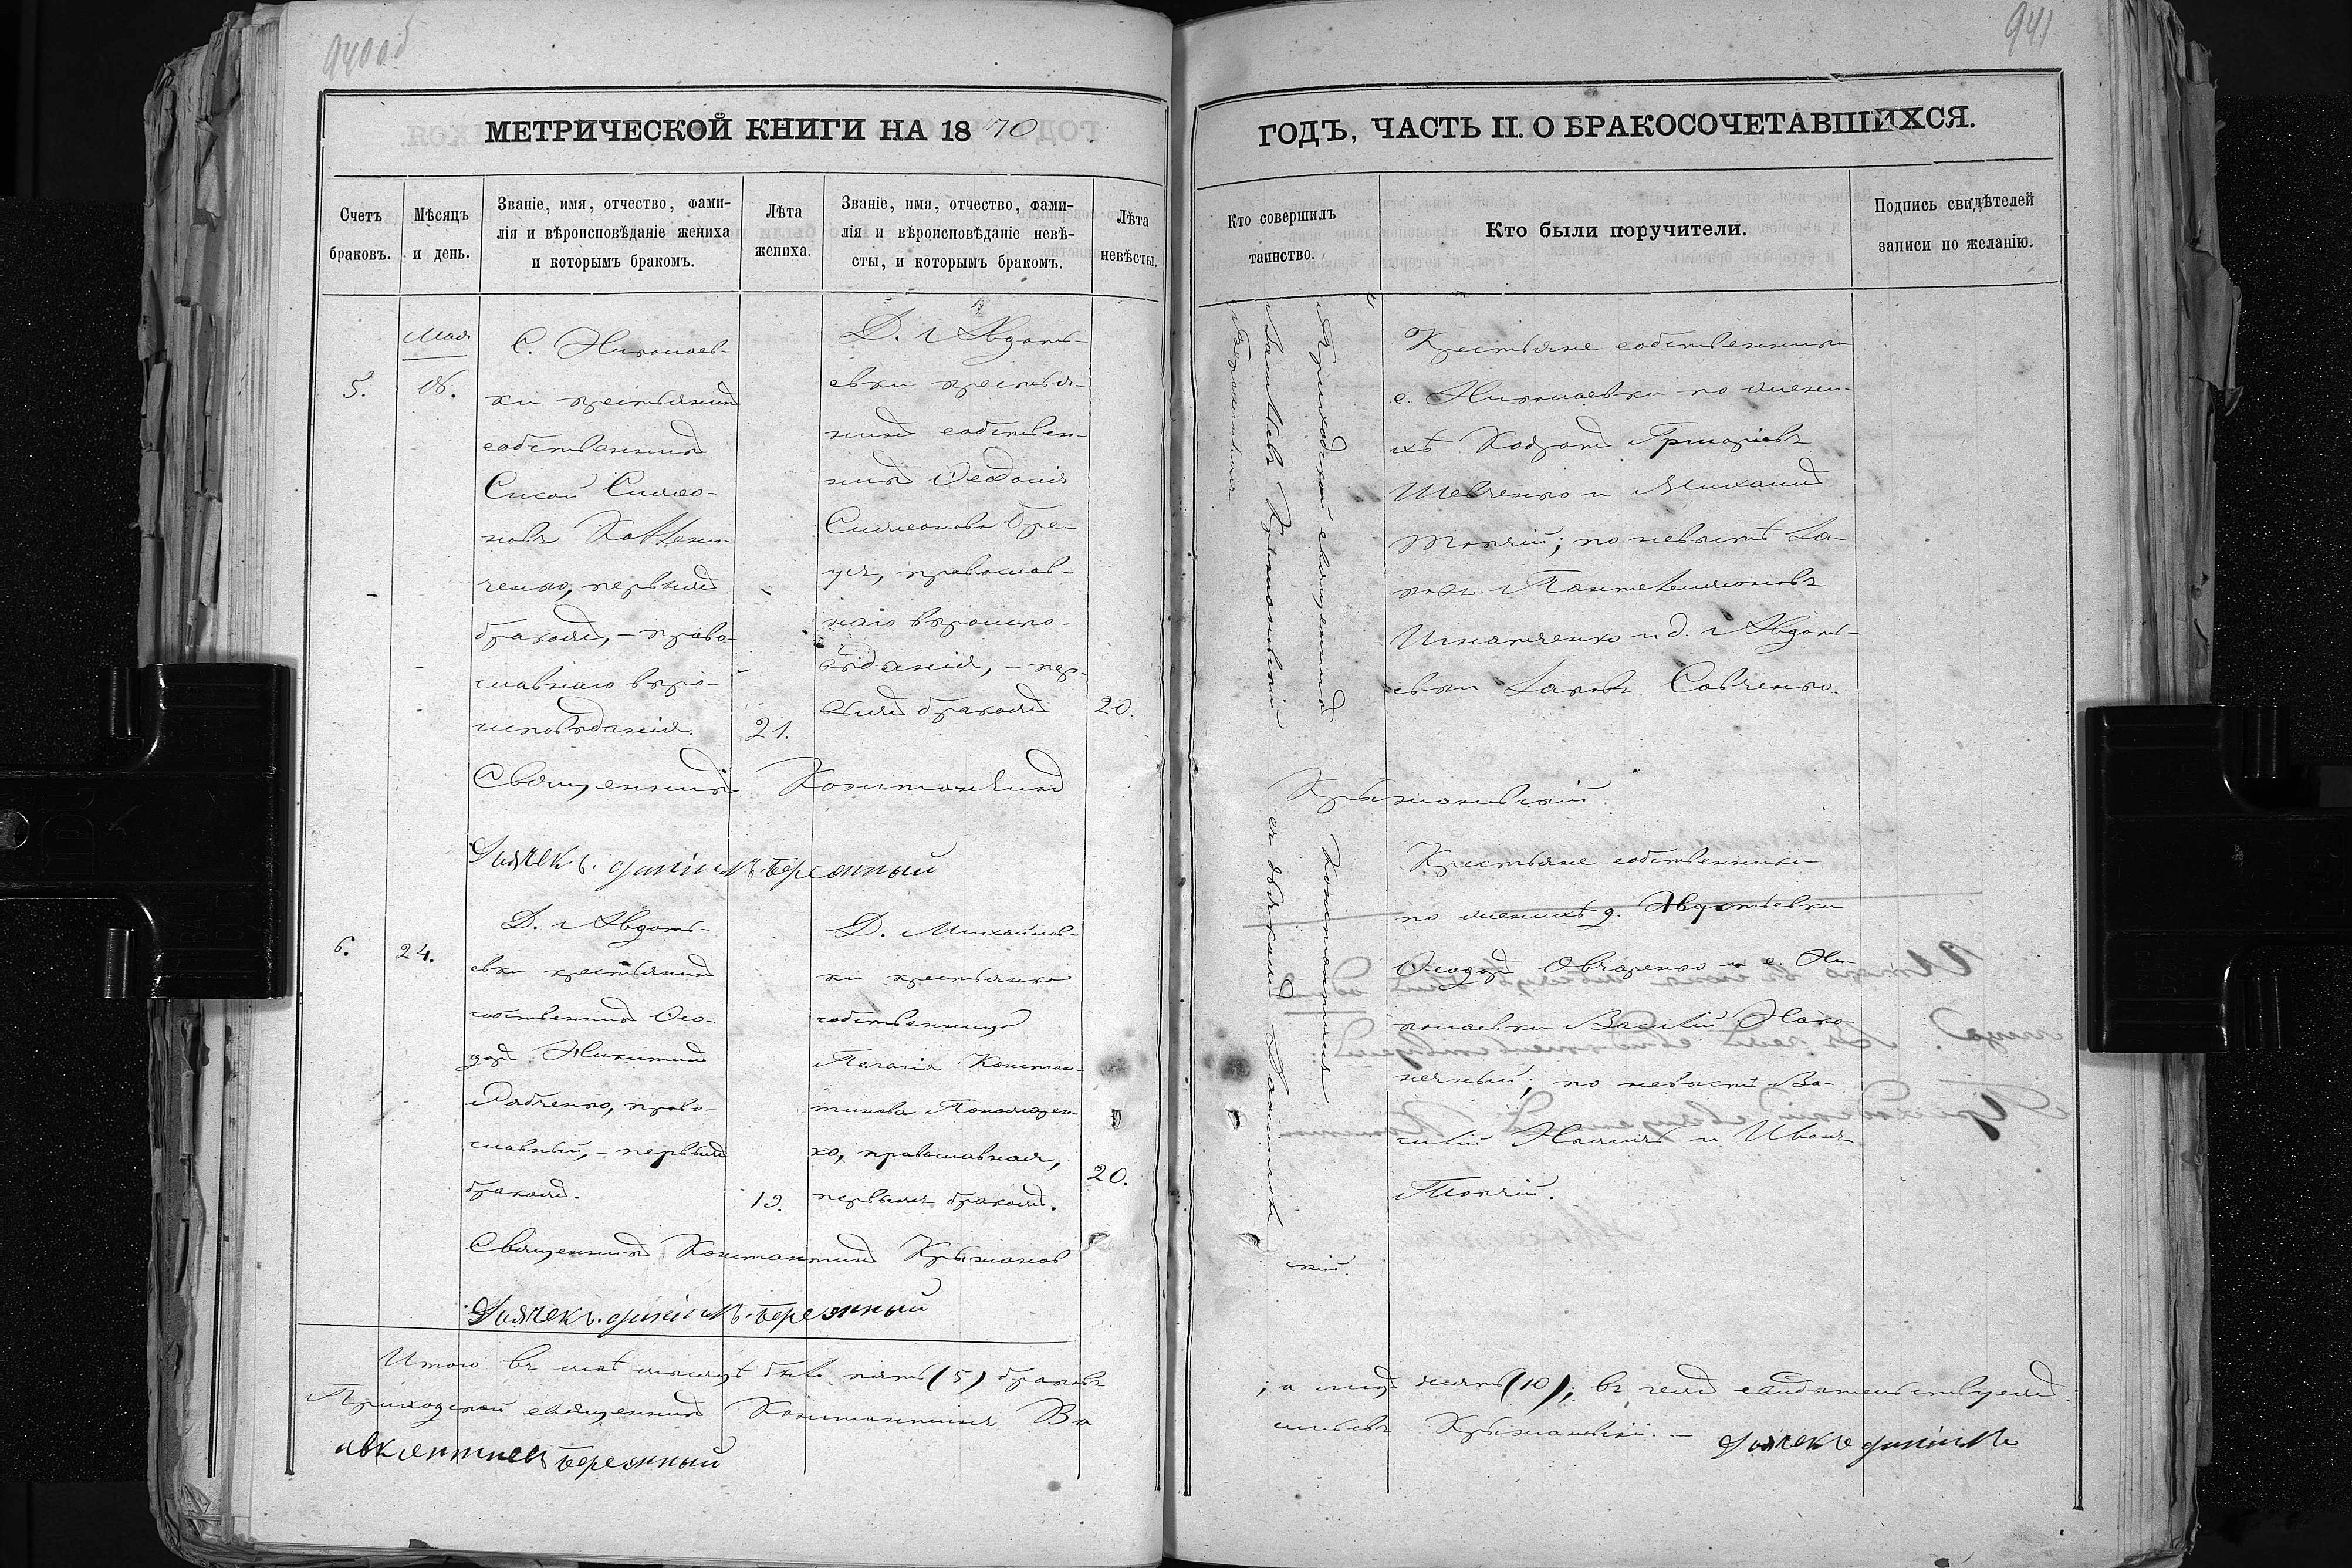 940об
941
МЕТРИЧЕСКОЙ КНИГИ НА 1870
ГОДЪ, ЧАСТЬ II. О БРАКОСОЧЕТАВШИХСЯ.
Счетъ
браковъ.
Мѣсяцъ
и день.
Званіе, имя, отчество, фами-
лія и вѣроисповѣданіе жениха
и которымъ бракомъ.
Лѣта
жениха.
Званіе, имя, отчество, фами-
лія и вѣроисповѣданіе невѣ-
сты, и которымъ бракомъ.
Лѣта
невѣсты.
Кто совершилъ
таинство.
Кто были поручители.
Подпись свидѣтелей
записи по желанію.
5.
Мая
С. Николаев-
ки крестьянинъ
собственникъ
Сисой Симео-
новъ
ченко, первымъ
бракомъ, – право-
славнаго вѣро-
исповѣданія.
21.
Д. Авдоть-
евки крестья-
нинъ собствен-
никъ Феодосія
Симеонова Бре-
усъ, православ-
наго вѣроиспо-
вѣданія, – пер-
вымъ бракомъ
20.
Приходской священникъ
Константинъ
Васильевъ Крыжановскій
съ дьячкомъ
Крестьяне собственники
с. Николаевки по жени-
хѣ Кодратъ Григоріевъ
Шевченко и Михаилъ
Топчій; по невѣстѣ Іа-
ковъ Пантелеимоновъ
Игнатченко и д. Авдоть-
евки Іаковъ Савченко.
Священникъ Константинъ Крыжановскій.
Дьячекъ Бережный
6.
24.
Д. Авдоть-
евки крестьянинъ
собственникъ Фео-
доръ Никитинъ
Рябченко, право-
славный, – первымъ
бракомъ.
19.
Д. Михайлов-
ки крестьянка
собственница
Пелагія Констан-
тинова Пономарен-
ко, православная,
первымъ бракомъ.
20.
Крестьяне собственники
по женихѣ д. Авдотьевки
Феодоръ Овчаренко и с. Ни-
колаевки Василій Нако-
нечный; по невѣстѣ Ва-
силій и Иванъ
Топчій.
Священникъ Константинъ Крыжановскій.
Дьячекъ Бережный
Итого въ маѣ мѣсяцѣ было пять (5) браковъ; а лицъ десять (10); въ чемъ свидѣтельствуемъ.
Приходской священникъ Константинъ Васильевъ Крыжановскій. – Дьячекъ
Бережный